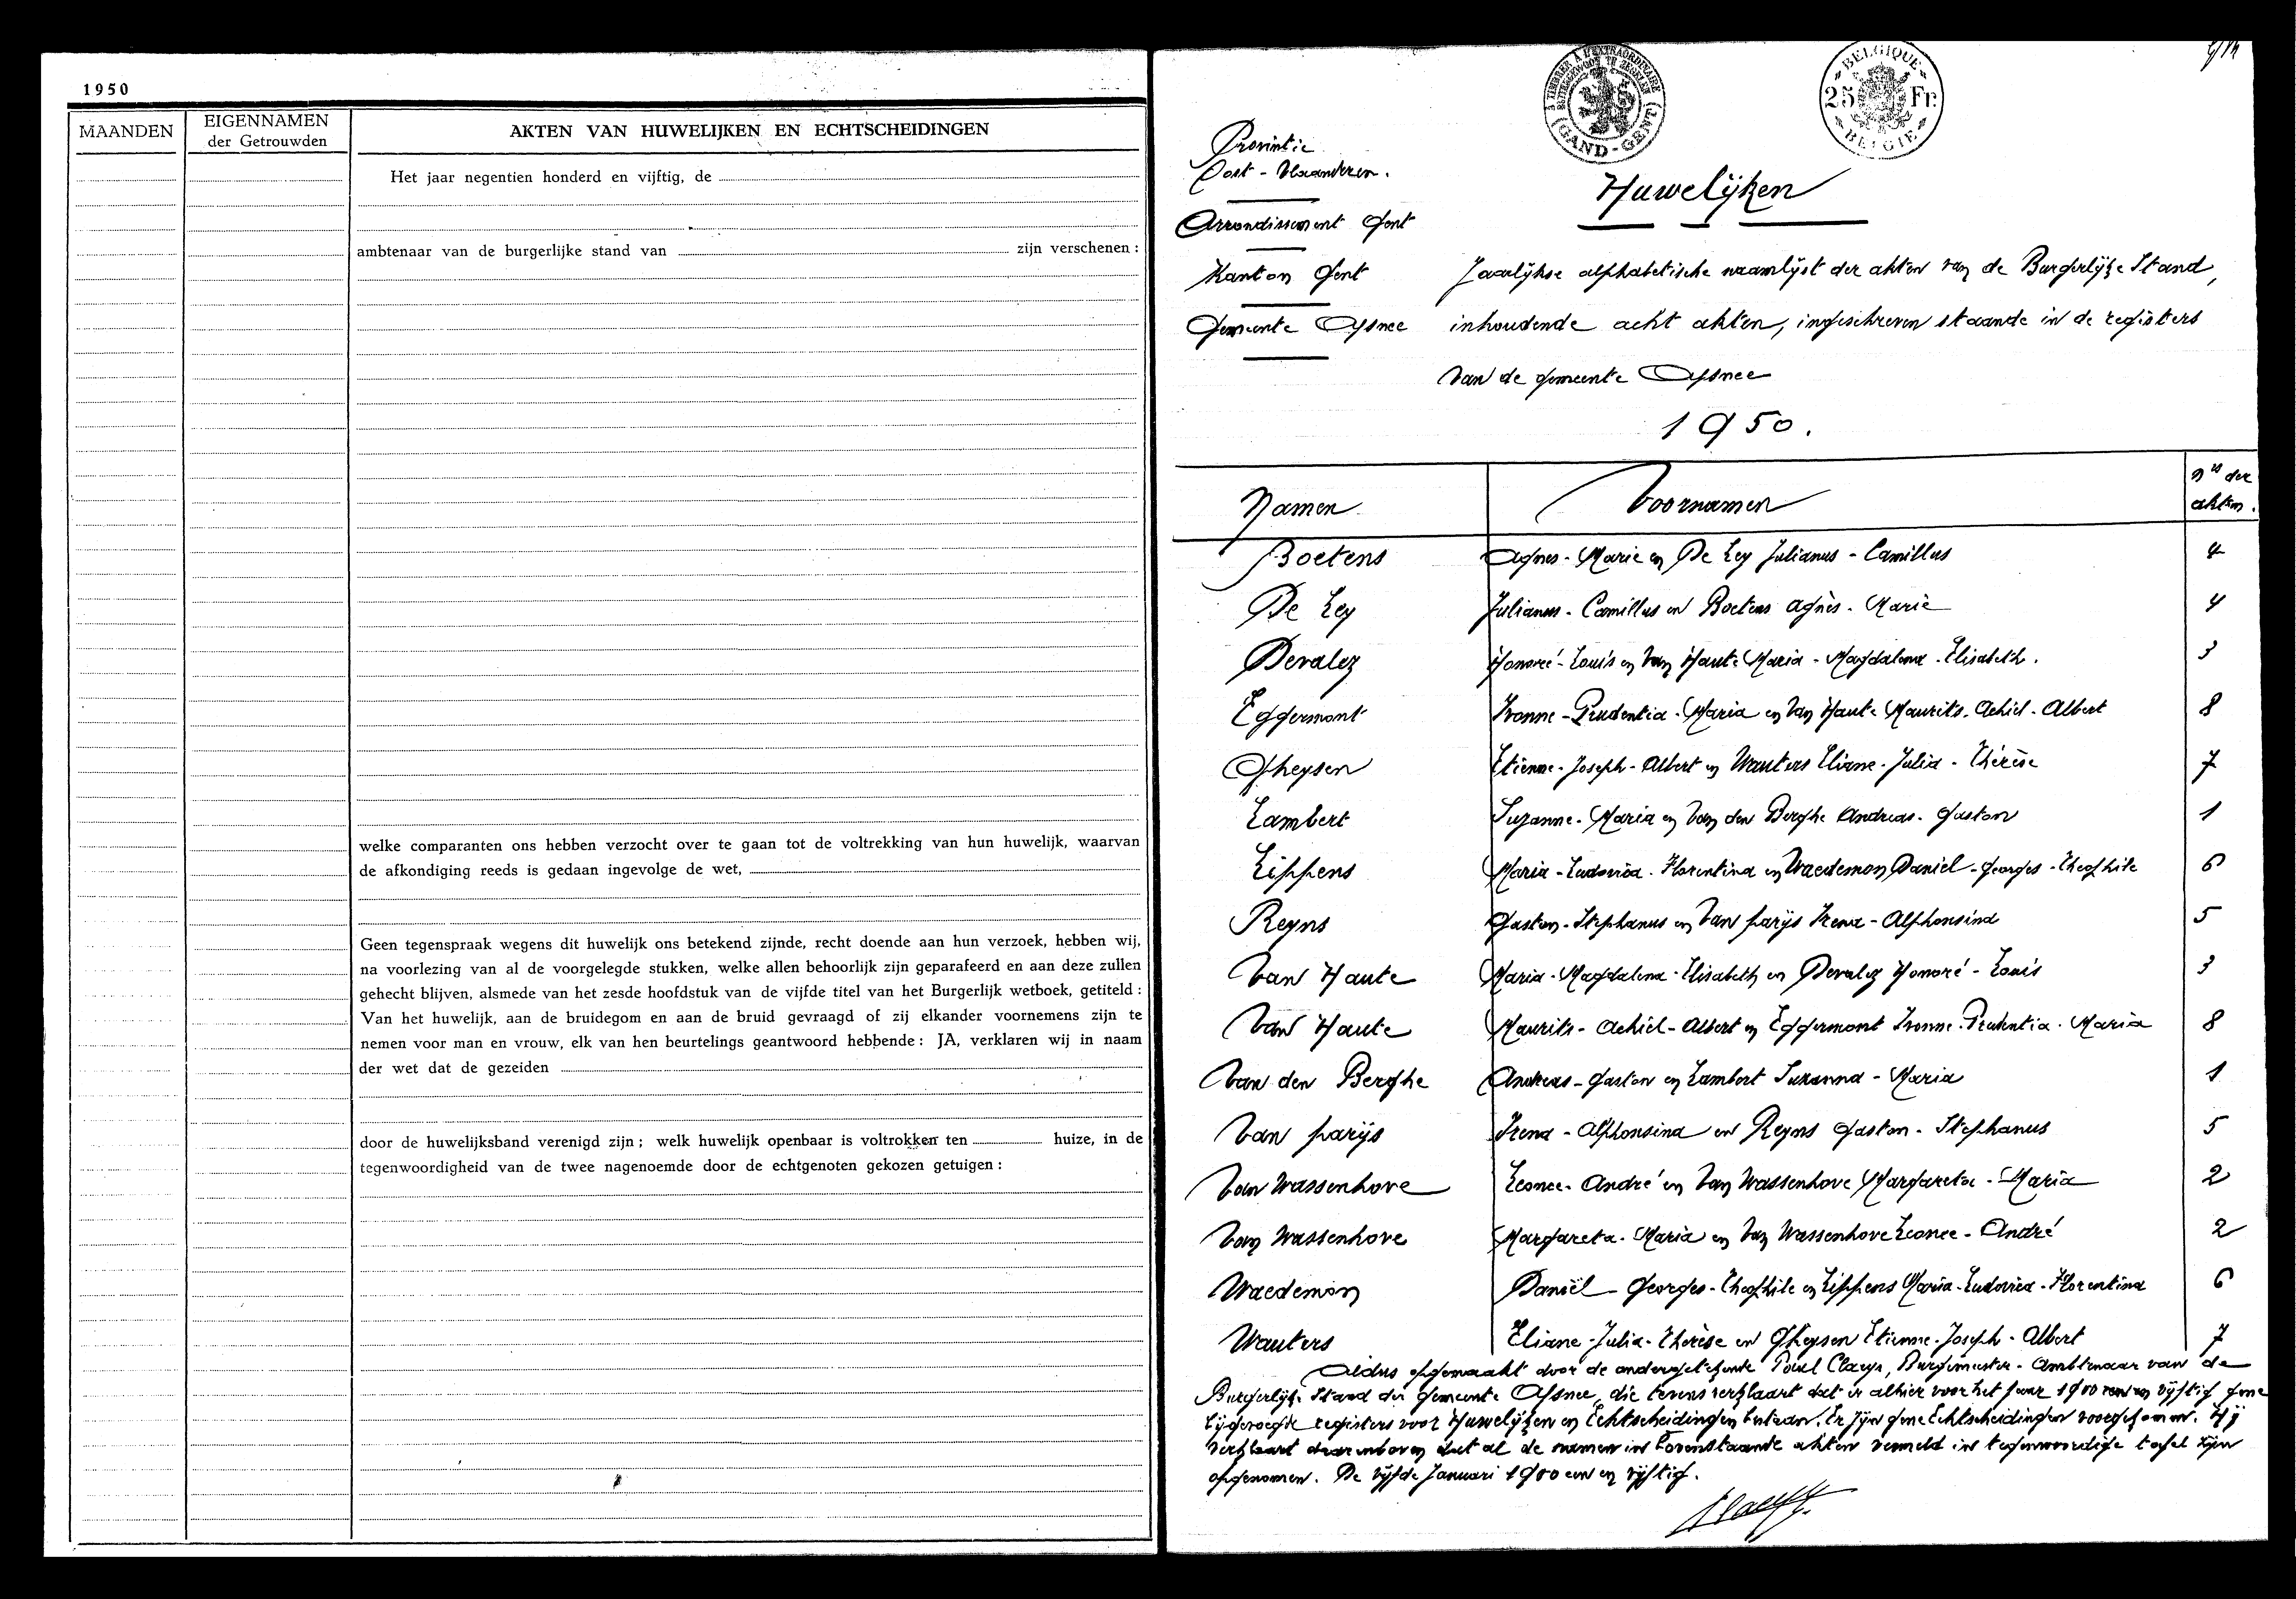 1950
MAANDEN
EIGENNAMEN
der Getrouwden
AKTEN VAN HUWELIJKEN EN ECHTSCHEIDINGEN
Het jaar negentien honderd en vijftig, de
ambtenaar van de burgerlijke stand van zijn verschenen :
welke comparanten ons hebben verzocht over te gaan tot de voltrekking van hun huwelijk, waarvan
de afkondiging reeds is gedaan ingevolge de wet,
Geen tegenspraak wegens dit huwelijk ons betekend zijnde, recht doende aan hun verzoek, hebben wij,
na voorlezing van al de voorgelegde stukken, welke allen behoorlijk zijn geparafeerd en aan deze zullen
gehecht blijven, alsmede van het zesde hoofdstuk van de vijfde titel van het Burgerlijk wetboek, getiteld :
Van het huwelijk, aan de bruidegom en aan de bruid gevraagd of zij elkander voornemens zijn te
nemen voor man en vrouw, elk van hen beurtelings geantwoord hebbende : JA, verklaren wij in naam
der wet dat de gezeiden
door de huwelijksband verenigd zijn ; welk huwelijk openbaar is voltrokken ten huize, in de
tegenwoordigheid van de twee nagenoemde door de echtgenoten gekozen getuigen :
TIMBRER A L'EXTRAORDINAIRE
BUITENGEWOON TE ZEGELEN
(GAND-GENT)
BELGIQUE
25 Fr.
BELGIE
Provintie
Oost - Vlaanderen.
Huwelijken
Arrondissement Gent
Kanton Gent
Gemeente Afsnee
Jaarlijkse alphabetische naamlijst der akten van de Burgerlijke Stand,
inhoudende acht akten, ingeschreven staande in de registers
van de gemeente Afsnee
1950.
Namen Voornamen Nrs der akten.
Boetens Agnes - Marie en De Ley Julianus - Camillus 4
De Ley Julianus - Camillus en Boetens Agnès - Marie 4
Devalez Honoré - Louis en Van Haute Maria - Magdalena - Elisabeth. 3
Eggermont Ivonne - Prudentia - Maria en Van Haute Maurits - Achiel - Albert 8
Gheysen Etienne - Joseph - Albert en Wauters Eliane - Julia - Thérèse 7
Lambert Suzanne - Maria en Van den Berghe Andreas - Gaston 1
Lippens Maria - Ludovica - Florentina en Waedemon Daniël - Georges - Theophile 6
Reyns Gaston - Stephanus en Van Parijs Irena - Alphonsina 5
Van Haute Maria - Magdalena - Elisabeth en Devalez Honoré - Louis 3
Van Haute Maurits - Achiel - Albert en Eggermont Ivonne - Prudentia - Maria 8
Van den Berghe Andreas - Gaston en Lambert Suzanna - Maria 1
Van Parijs Irena - Alphonsina en Reyns Gaston - Stephanus 5
Van Wassenhove Leonce - André en Van Wassenhove Margareta - Maria 2
Van Wassenhove Margareta - Maria en Van Wassenhove Leonce - André 2
Waedemon Daniël - Georges - Theophile en Lippens Maria - Ludovica - Florentina 6
Wauters Eliane - Julia - Thérèse en Gheysen Etienne - Joseph - Albert 7
Aldus opgemaakt door de ondergetekende Paul Claeys, Burgemeester - Ambtenaar van de
Burgerlijke Stand der gemeente Afsnee, die tevens verklaart dat er alhier voor het jaar 1900 een en vijftig gene
bijgevoegde registers voor Huwelijken en Echtscheidingen bestaan. Er zijn gene Echtscheidingen voorgekomen. Hij
verklaart daarenboven dat al de namen in bovenstaande akten vermeld in tegenwoordige tafel zijn
opgenomen. De vijfde Januari 1900 een en vijftig.
Claeys